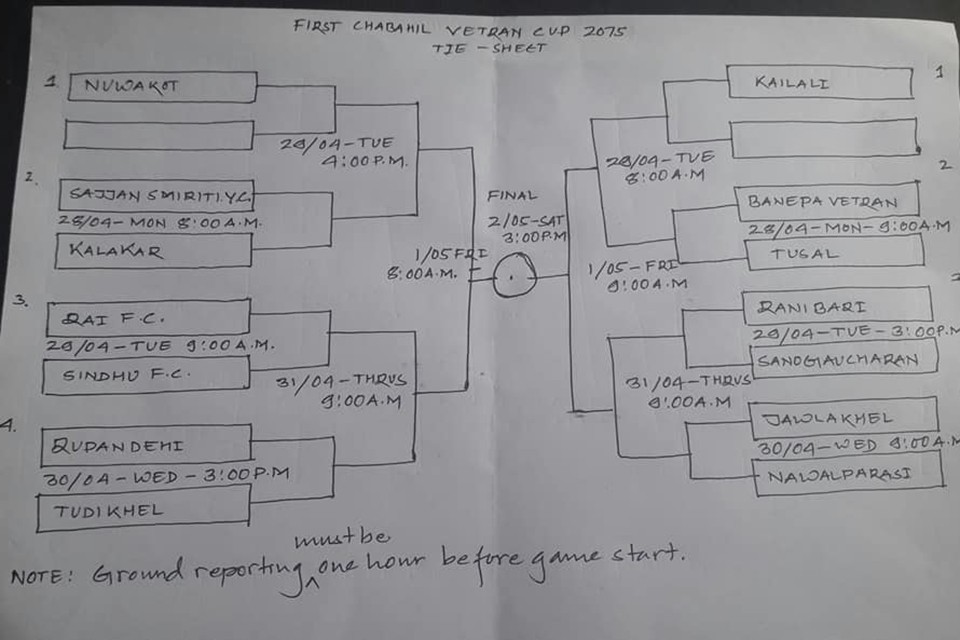 FIRST CHABAHIL VETRAN CUP 2075
TIE - SHEET
1. NUWAKOT
29/04-TUE
4:00 P.M.
2. SAJJAN SMIRITI.Y.C.
28/04-MON 8:00 A.M.
KALAKAR
1/05 FRI
8:00 A.M.
3. RAI F.C.
29/04-TUE 9:00 A.M.
SINDHU F.C.
31/04-THRUS
9:00 A.M
4. RUPANDEHI
30/04-WED-3:00 P.M
TUDIKHEL
FINAL
2/05-SAT
3:00 P.M
KAILALI 1
29/04-TUE
8:00 A.M
2
BANEPA VETRAN
28/04-MON-9:00 A.M
TUSAL
1/05-FRI
9:00 A.M
RANIBARI
29/04-TUE-3:00 P.M
SANOGAUCHARAN
31/04-THRUS
9:00 A.M
JAWLAKHEL
30/04-WED 9:00 A.M
NAWALPARASI
NOTE: Ground reporting must be one hour before game start.